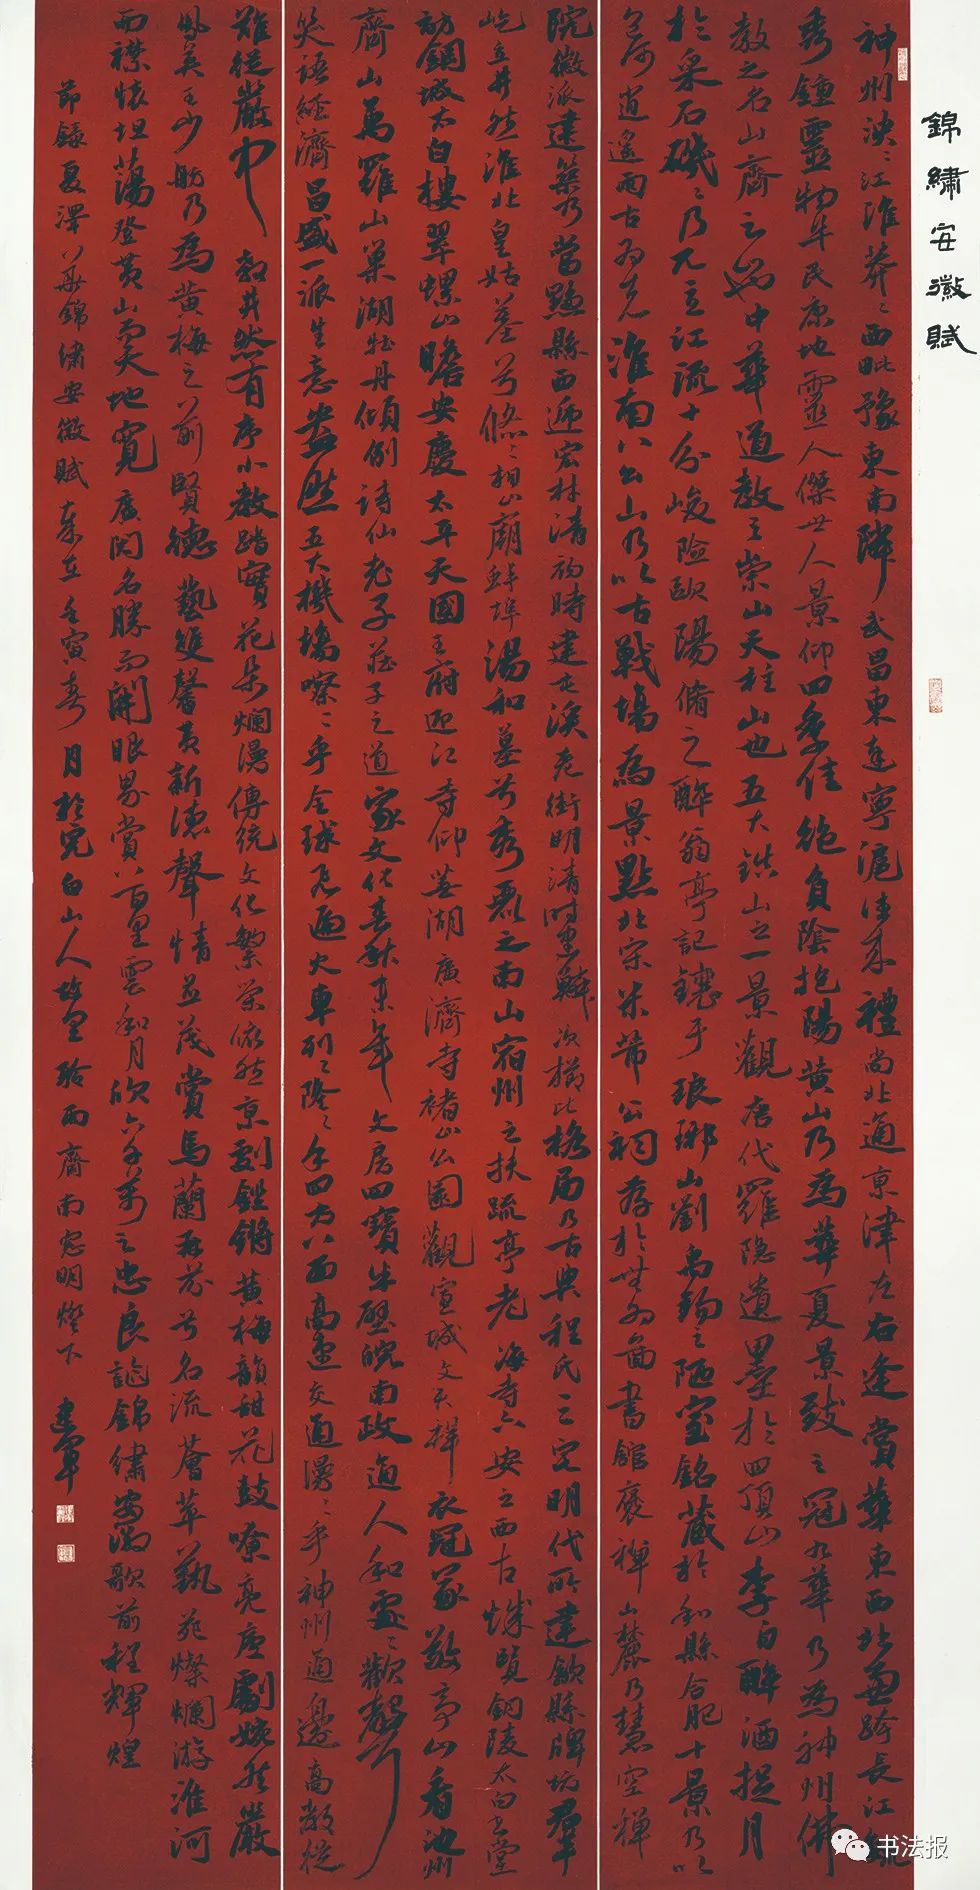 錦繡安徽賦
神州泱泱江淮莽莽西毗豫東南降武昌東連寧滬達禮尚北通京津左右逢賞華東西北兼跨長江
秀鍾靈物阜民康地靈人傑世人景仰四季佳絕負陰抱陽黃山乃為華夏景致之冠九華乃為神州佛
教之名山齊之中華道教之崇山天柱山也五大鎮山之一景觀唐代羅隐遺墨於四頂山李白醉酒捉月
於采石磯磯乃兀立江流十分峻險歐陽脩之醉翁亭記鐫于琅琊山劉禹錫之陋室銘藏於和縣合肥十景乃以
逍遙而古淮南八公山乃以古戰場為景點北宋米芾公祠存於無為面書館褒禪山麓乃慧空禪
院徽派建築乃當黟縣西遞宏村清初時建屯溪老街明清時建鱗次櫛比格局乃古典程氏三宅明代所建歙縣牌坊羣
屹立井然淮北皇姑墓兮悠悠相山廟蚌埠湯和墓兮秀麗之南山宿州之扶疏亭老海寺六安之西古城覽銅陵太白書堂
訪銅城太白樓翠螺山瞻安慶太平天國王府迎江寺仰蕪湖廣濟寺褚山公園觀宣城文天祥衣冠冢敬亭山看池州
齊山萬羅山巢湖牡丹傾倒詩仙老子莊子之道家文化春秋年文房四寶朱璧皖南政通人和靈靈歡聲
笑語經濟昌盛一派生意盎然五大機場嚓嚓乎全球飛遍火車列列隆隆乎四方八面高速交通漫漫乎神州通邊高教從
難從嚴中教井然有序小教踏實花朵爛漫傳統文化繁榮依然京劇鏗鏘黃梅韻甜花鼓嘹亮廬劇婉然嚴
鳳英王少舫乃為黃梅之前賢德藝雙馨黃新德聲情並茂賞馬蘭再芬兮名流薈萃藝苑燦爛游淮河
而襟懷坦蕩登黃山而天地寬廣閱名勝而開眼界賞八百里雲和月欣六千萬之忠良謳錦繡安徽歌前程輝煌
節錄夏澤八華錦繡安徽賦 歲在壬寅春月於完白山人故里聆雨齋南窗明燈下 建軍
书法报